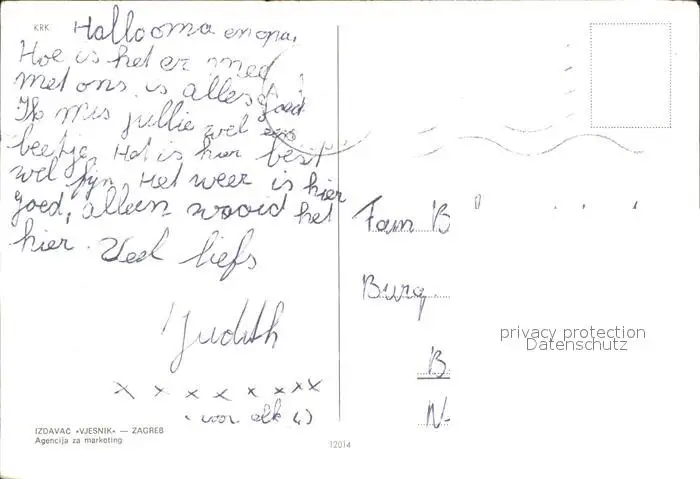 KRK
Hallo oma en opa.
Hoe is het er mee
met ons is alles goed
Ik mis jullie wel een
beetje. Het is hier best
wel fijn. Het weer is hier
goed, alleen waaid het
hier. Veel liefs
Judith
x x x x x x x x
voor elk 4)
Fam B
Burg.
B
N-
privacy protection
Datenschutz
IZDAVAČ »VJESNIK« — ZAGREB
Agencija za marketing
12014